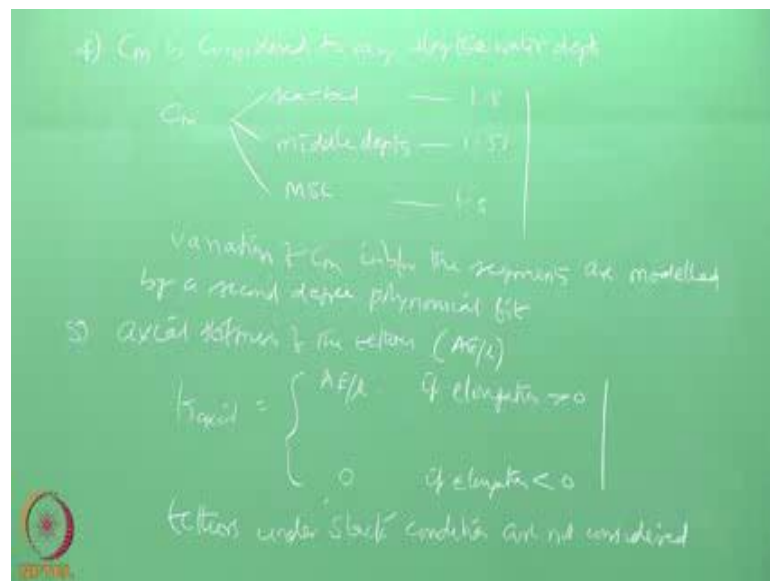 4) Cm is considered to vary along the water depth
Cm
sea-bed — 1.8
middle depth —
MSL —
Variation of Cm within the segments are modelled
by a second degree polynomial fit
5) axial stiffness of the tether (AE/l)
Kaxial = { AE/l if elongation > 0
0 if elongation < 0
tethers under 'slack' condition are not considered
NPTEL